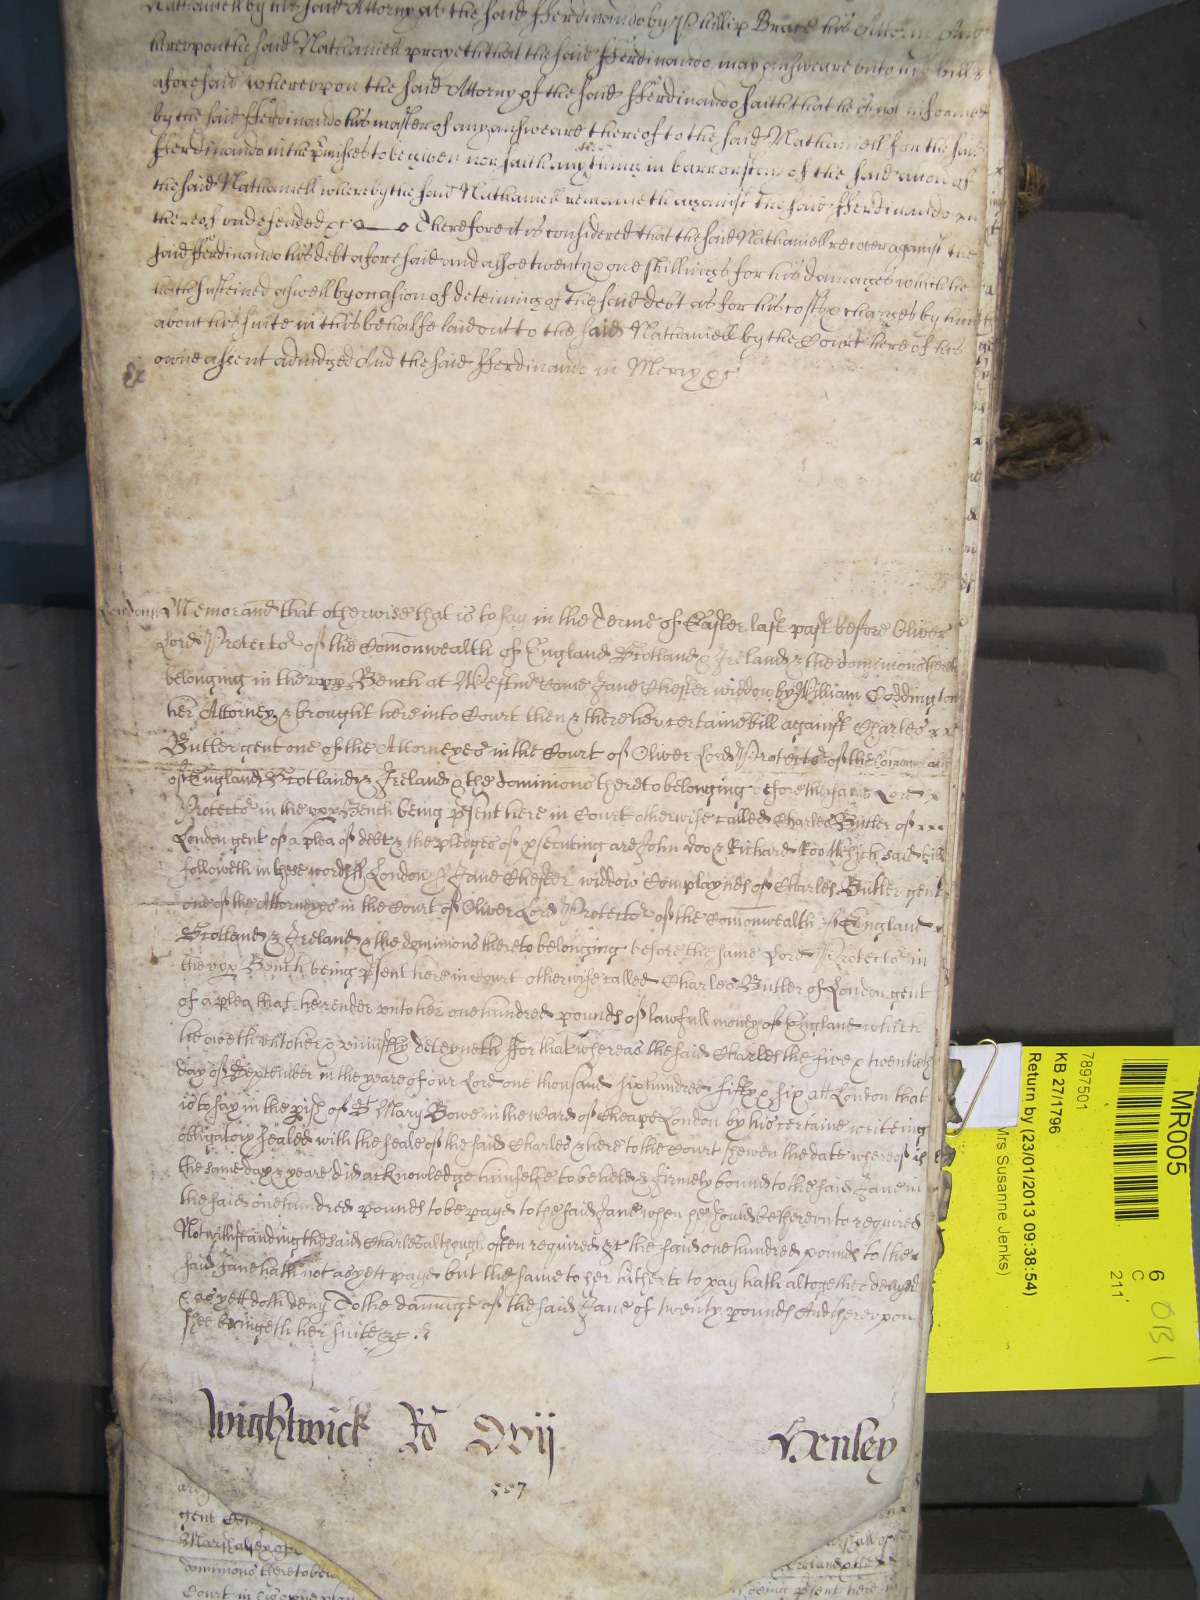 Nathaniell by his said Attorny as the said Fferdinando by Phillip Brace his Attorny
hereupon the said Nathaniell prayeth that the said Fferdinando may answeare unto his bill
aforesaid whereupon the said Attorny of the said Fferdinando saith that he is not informed
by the said Fferdinando his master of any answeare thereof to the said Nathaniell for the said
Fferdinando in the p̱mises to be given nor saith any thing in barr of the said accon of
the said Nathaniell whereby the said Nathaniell remaineth against the said Fferdinando
thereof undefended &c Therefore it is considered that the said Nathaniell recover against the
said Fferdinando his debt aforesaid and alsoe twenty & one shillings for his damages which he
hath susteined aswell by occasion of deteining of the said debt as for his costs & charges by him
about his suite in this behalfe laid out to the said Nathaniell by the Court here of his
owne assent adiudged And the said Fferdinando in Mercy &c
London Memorand that otherwise that is to say in the Terme of Easter last past before Oliver
Lord Protector of the Comonwealth of England Scotland & Ireland & the dominions thereto
belonging in the upp Bench at Westmr Came Jane Chester widdow by William Coddington
her Attorney & brought here into Court then & there her certaine bill against Charles
Butler gent one of the Attorneyes in the Court of Oliver Lord Protector of the Comonwealth
of England Scotland & Ireland & the dominions thereto belonging before the same Lord
Protector in the upp Bench being p̱sent here in Court otherwise called Charles Butler of
London gent of a plea of debt & the pledges of p̱secuting are John Doo & Richard Roo Which said bill
followeth in these words ss London ss Jane Chester widdow Complaynes of Charles Butler gent
one of the Attorneyes in the Court of Oliver Lord Protector of the Comonwealth of England
Scotland & Ireland & the dominions thereto belonging before the same Lord Protector in
the upp Bench being p̱sent here in Court otherwise called Charles Butler of London gent
of a plea that he render unto her one hundred pounds of lawfull money of England which
he oweth unto her & uniustly deteyneth Ffor that whereas the said Charles the five & twentieth
day of September in the yeare of our Lord one thousand six hundred fifty & six att London that
is to say in the p̱ish of St Mary Bowe in the ward of Cheape London by his certaine writeing
obligatory sealed with the seale of the said Charles & here to the Court shewen the date whereof is
the same day & yeare did acknowledge himselfe to be held & firmely bound to the said Jane in
the said one hundred pounds to be payd to the said Jane when he should be thereunto required
Notwithstanding the said Charles although often required &c the said one hundred pounds to the
said Jane hath not as yett payd but the same to her hitherto to pay hath altogether denyed
& as yett doth deny To the damage of the said Jane of twenty pounds And thereupon
shee bringeth her suite &c
Wightwick Ro Dvij Henley
557
gent
Marshalsey
dominions thereto
Court in
Ireland & the
being p̱sent here in
MR005
6
C
211
OB1
7897501
KB 27/1796
Return by (23/01/2013 09:38:54)
Mrs Susanne Jenks)